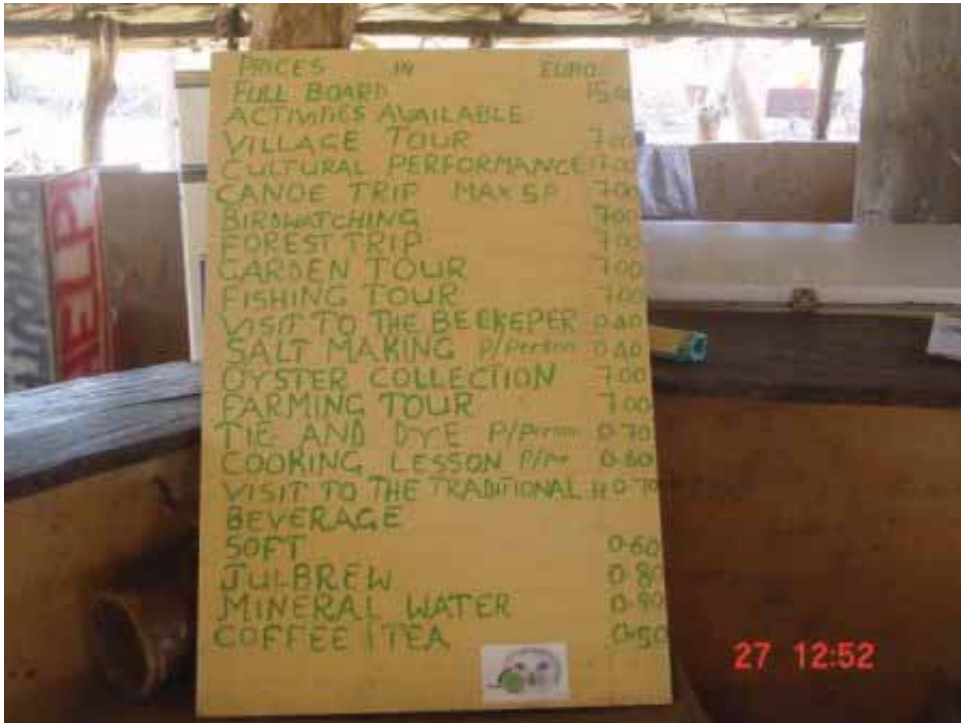 PRICES IN EURO
FULL BOARD
ACTIVITIES AVAILABLE
VILLAGE TOUR 7.00
CULTURAL PERFORMANCE 17.00
CANOE TRIP MAX 5P 7.00
BIRDWATCHING 7.00
FOREST TRIP 7.00
GARDEN TOUR 7.00
FISHING TOUR 7.00
VISIT TO THE BEEKEEPER 0.40
SALT MAKING P/Person 0.40
OYSTER COLLECTION 7.00
FARMING TOUR 7.00
TIE AND DYE P/Person 0.70
COOKING LESSON 0.60
VISIT TO THE TRADITIONAL H 0.70
BEVERAGE
SOFT 0.60
JULBREW 0.80
MINERAL WATER
COFFEE / TEA 0.50
HELP
27 12:52